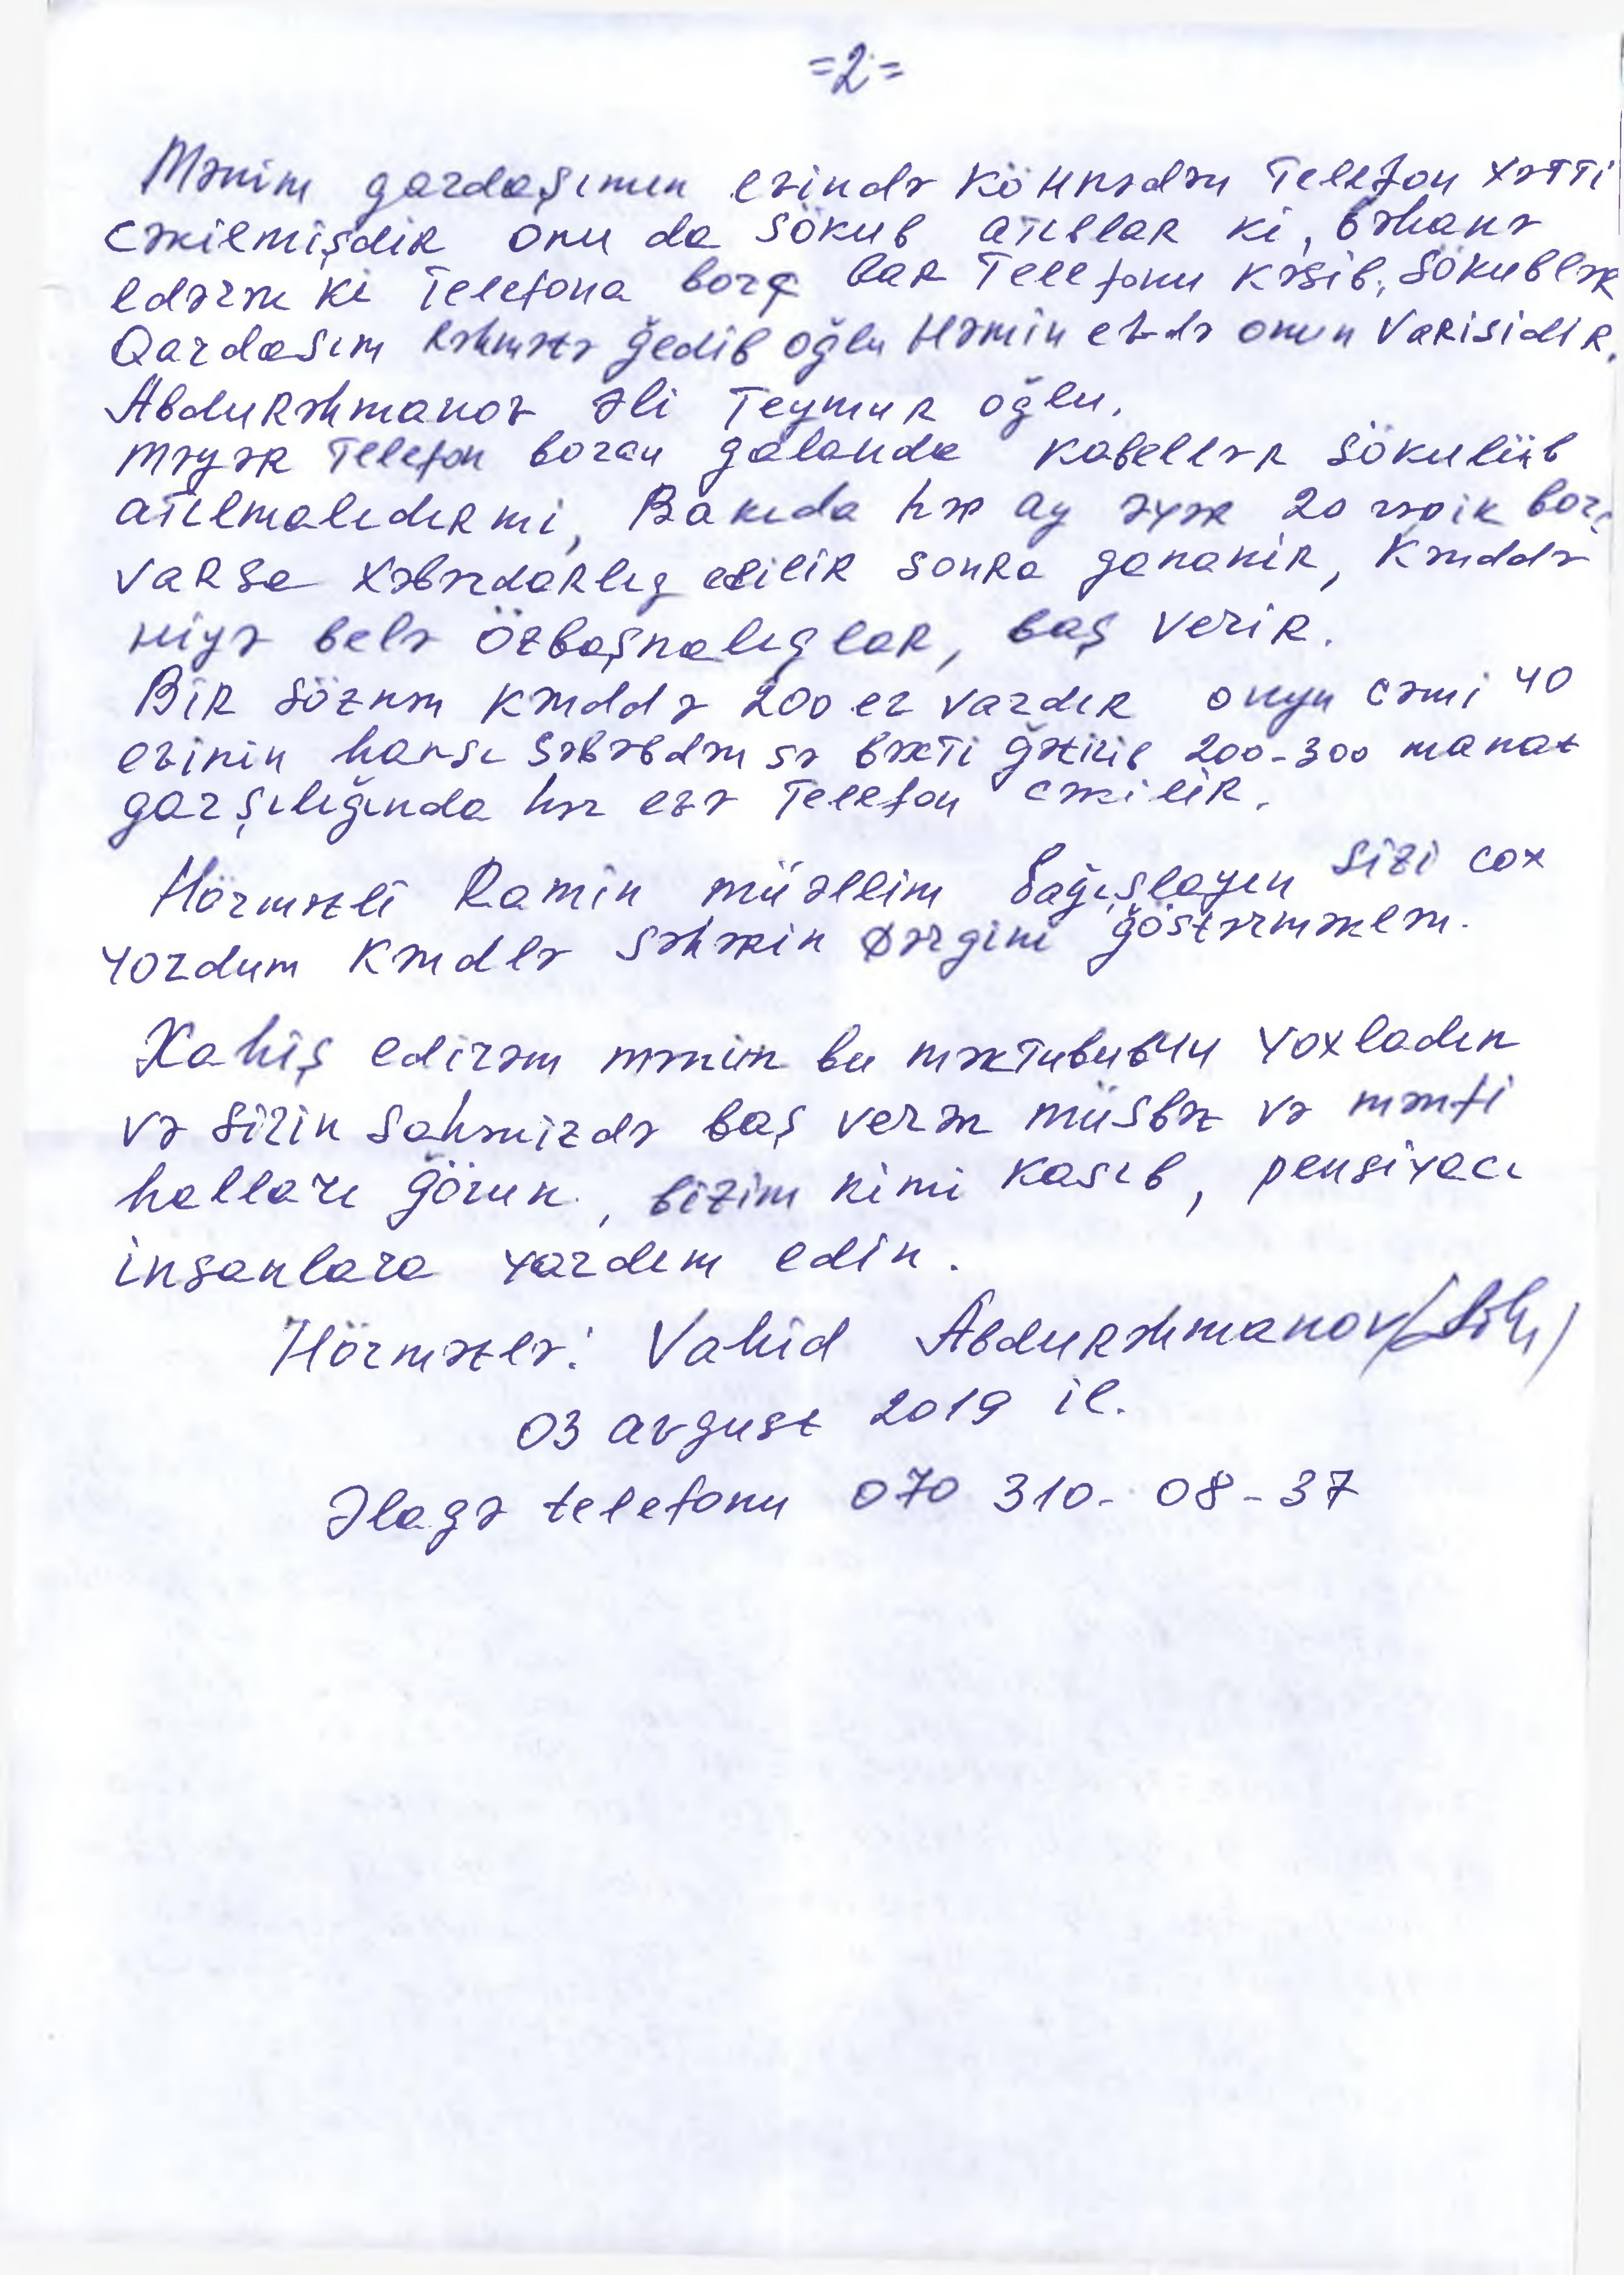 =2=
Mənim gardaşımın evində köhnədən Telefon xəTTi
cəkilmişdiR onu da sökub aTıblaR ki, bəhanə
edərək ki Telefona borç vaR Telefonu kəsib, sökubləR
Qardaşım Rəhmətə ğedib oğlu Həmin evdə onun VaRisidiR,
AbduRəhmanov Əli TeymuR oğlu.
məyəR Telefon borcu galanda kabelləR sökulüb
aTılmalıdıRmi, Bakıda həR ay əyəR 20 qəpik borc
vaRsa xəbərdaRlıg ediliR sonRa gapaniR, Kənddə
niyə belə ÖzbaşnalıglaR, baş veriR.
BiR sözнən kənddə 200 ev vardıR onun cəmi 40
evinin hansı səbəbdən sə bəxTi ğətirib 200-300 manat
garşılığında hər evə Telefon cəkiliR.
Hörmətli Ramin müəllim bağışlayın sizi cox
yordum kəndlə şəhəRin fərgini ğöstərməklən.
Xahiş edirəm mənim bu məkTububuu yoxladın
və sizin sahənizdə baş verən müsbət və mənfi
halları ğörun, bizim kimi kasıb, pensiyacı
insanlara yardım edin.
Hörmətlə: Vahid AbduRəhmanov
03 avgust 2019 il.
Əlagə telefonu 070 310-08-37